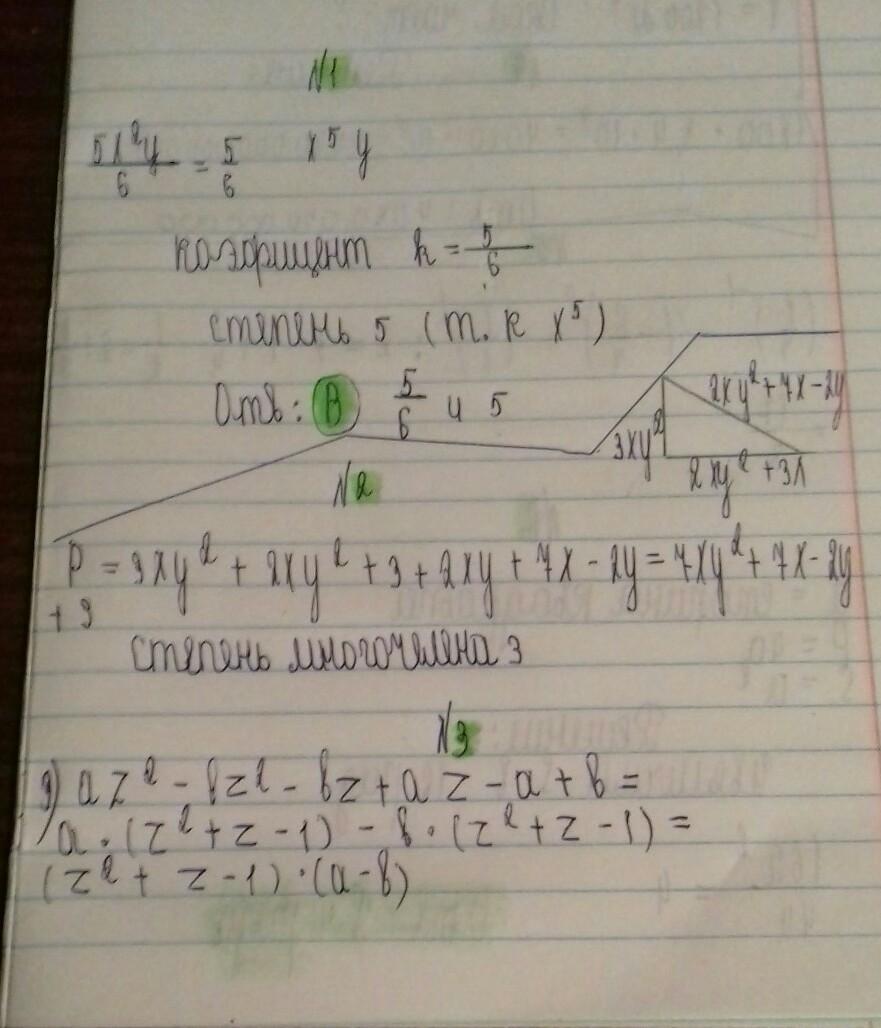 N1
5x²y/6 = 5/6 x⁵y
коэфициент k = 5/6
степень 5 (т. к x⁵)
Отв: В) 5/6 и 5
2xy² + 7x - 2y
3xy²
2xy² + 3x
N2
P = 3xy² + 2xy² + 3 + 2xy + 7x - 2y = 7xy² + 7x - 2y
+ 3
степень многочлена 3
N3
az² - bz² - bz + az - a + b =
a · (z² + z - 1) - b · (z² + z - 1) =
(z² + z - 1) · (a - b)